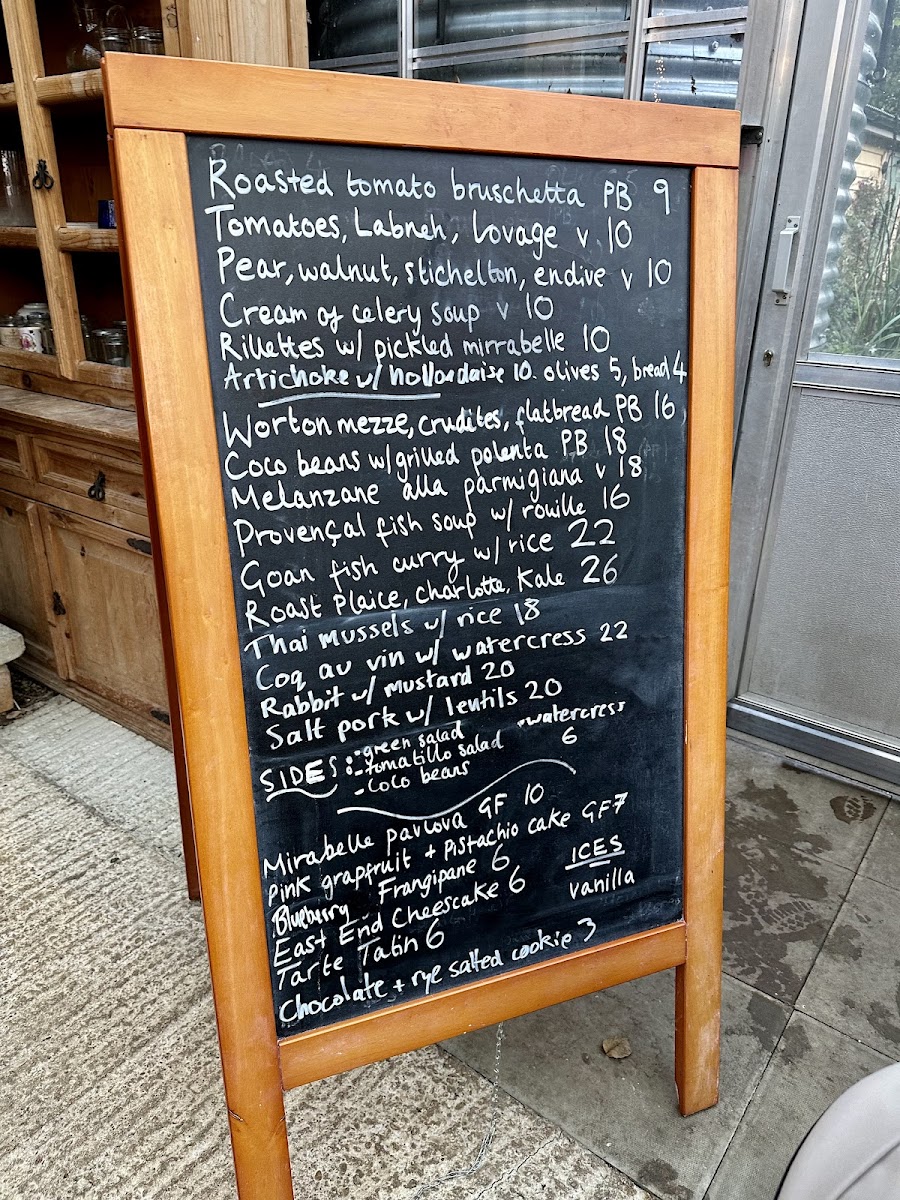 Roasted tomato bruschetta PB 9
Tomatoes, Labneh, Lovage v 10
Pear, walnut, stichelton, endive v 10
Cream of celery soup v 10
Rillettes w/ pickled mirrabelle 10
Artichoke w/ hollondaise 10. olives 5, bread 4
Worton mezze, crudites, flatbread PB 16
Coco beans w/ grilled polenta PB 18
Melanzane alla parmigiana v 18
Provençal fish soup w/ rouille 16
Goan fish curry w/ rice 22
Roast Plaice, charlotte, Kale 26
Thai mussels w/ rice 18
Coq au vin w/ watercress 22
Rabbit w/ mustard 20
Salt pork w/ lentils 20
SIDES: - green salad - watercress
- tomatillo salad 6
- coco beans
Mirabelle pavlova GF 10
Pink grapfruit + Pistachio cake GF 7
Blueberry Frangipane 6 ICES
East End Cheescake 6 vanilla
Tarte Tatin 6
Chocolate + rye salted cookie 3